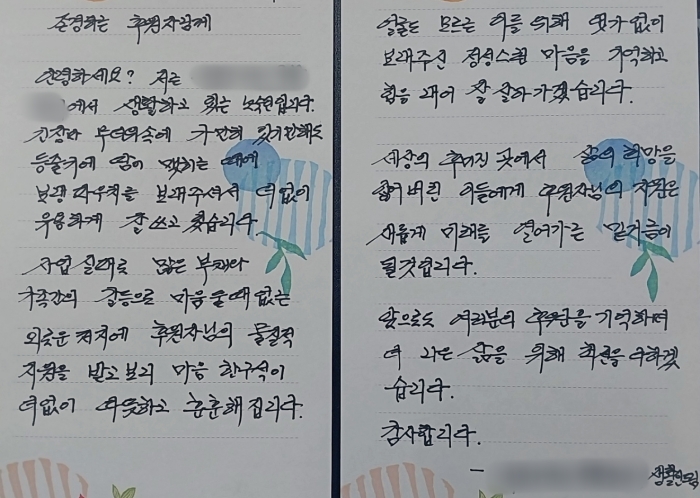 존경하는 후원자님께
안녕하세요? 저는
에서 생활하고 있는 입니다.
긴장한 무더위속에 가만히 있기만해도
등줄기에 땀이 맺히는 때에
보냉 파우치를 보내주셔서 더없이
유용하게 잘 쓰고 있습니다.
사업 실패로 많은 부채와
가족간의 갈등으로 마음 둘데 없는
외로운 처지에 후원자님의 물질적
지원을 받고 보니 마음 한구석이
더없이 따뜻하고 훈훈해 집니다.
얼굴도 모르는 이를 위해 댓가 없이
보내주신 정성스런 마음을 기억하고
힘을 내어 잘 살아가겠습니다.
세상의 후미진 곳에서 삶의 희망을
잃어버린 이들에게 후원자님의 지원은
새롭게 미래를 열어가는 밑거름이
될것입니다.
앞으로도 여러분의 후원을 기억하며
더 나은 삶을 위해 최선을 다하겠
습니다.
감사합니다.
- 생활인드림